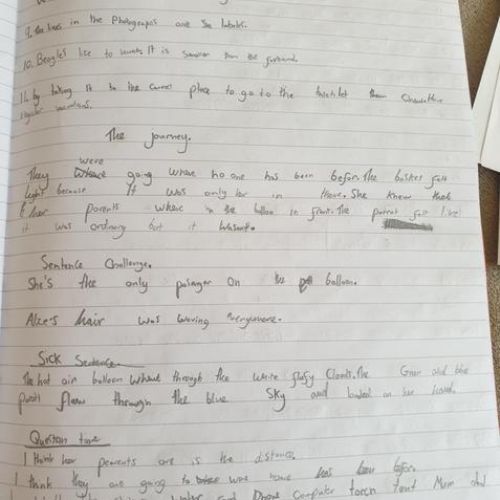 9. The lines in the Photgraphs are the labels.
10. Beagles like to hunt. It is smaller than the
11. by taking it to the correct place to go to the toilet
regular
The journey.
were
They going where no one has been before. The basket felt
light because it was only her in there. She knew that
her parents where in the balloon in front. The parrot felt like
it was ordinary but it wasent.
Sentence Challenge.
She's the only on the balloon.
hair was waving everywhere.
Sick Sentence.
The hot air balloon through the white flufy Clouds. The Green and blue
flew through the blue Sky and landed on her hand.
Question time
I think her perents are is the distance.
I think they are going to were none has been before.
and Drone computer torch tent Mum and